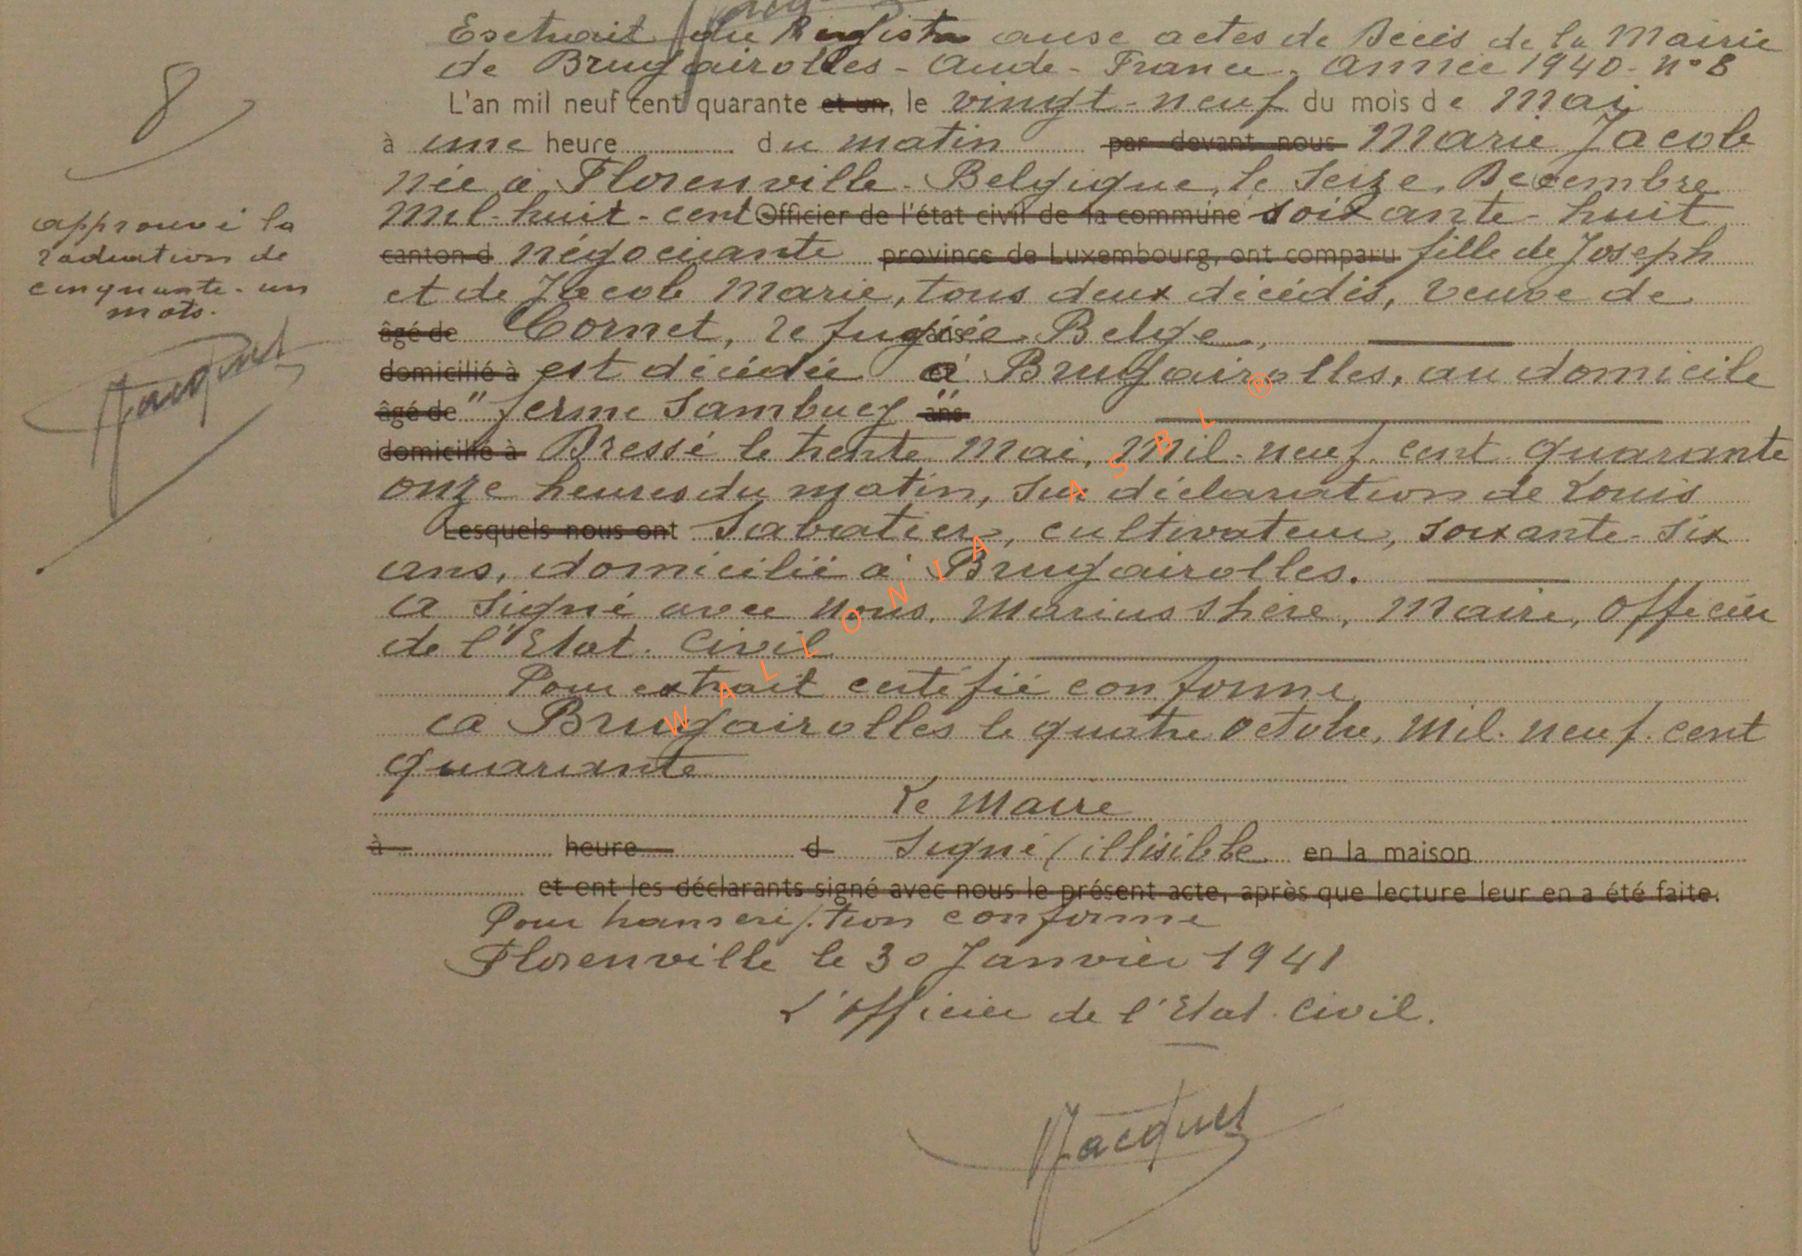 8
Extrait du Registre aux actes de Décès de la Mairie
de Brugairolles - Aude - France. Année 1940 - n° 8
L'an mil neuf cent quarante et un, le vingt-neuf du mois de Mai
à une heure du matin par devant nous Marie Jacob
née à Florenville - Belgique, le seize Décembre
Mil-huit-cent Officier de l'état civil de la commune soixante-huit
canton d négociante province de Luxembourg, ont comparu fille de Joseph
et de Jacob Marie, tous deux décédés, veuve de
âgé de Cornet, refugiée Belge, ans
domicilié à est décédée à Brugairolles, au domicile
âgé de "ferme Sambucy" ans
domicilié à Dressé le trente Mai, Mil-neuf cent quarante
onze heures du matin, sur déclaration de Louis
Lesquels nous ont Sabatier, cultivateur, soixante-six
ans, domicilié à Brugairolles.
a signé avec Nous, Marius Maire, Officier
de l'Etat-Civil
Pour extrait certifié conforme
a Brugairolles le quatre Octobre, Mil-neuf-cent
quarante
Le Maire
à heure d Signé (illisible en la maison
et ont les déclarants signé avec nous le présent acte, après que lecture leur en a été faite.
Pour transcription conforme
Florenville le 30 Janvier 1941
L'Officier de l'Etat-Civil.
Jacquet
approuvé la
radiation de
cinquante-un
mots.
Jacquet
WALLONIA ASBL ®